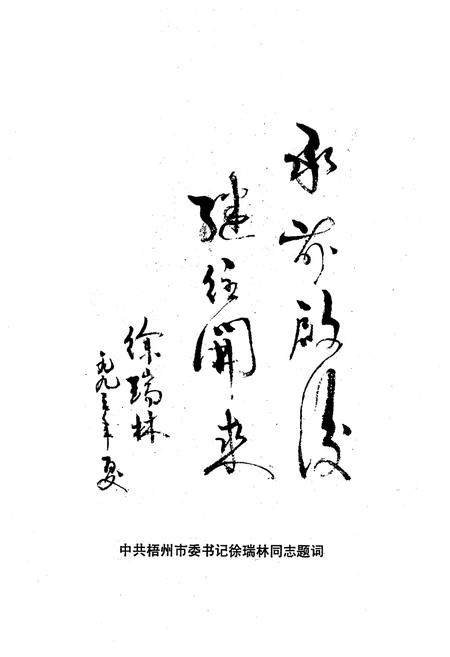 承前啟後
继往開来
徐瑞林
一九九三年夏
中共梧州市委书记徐瑞林同志题词